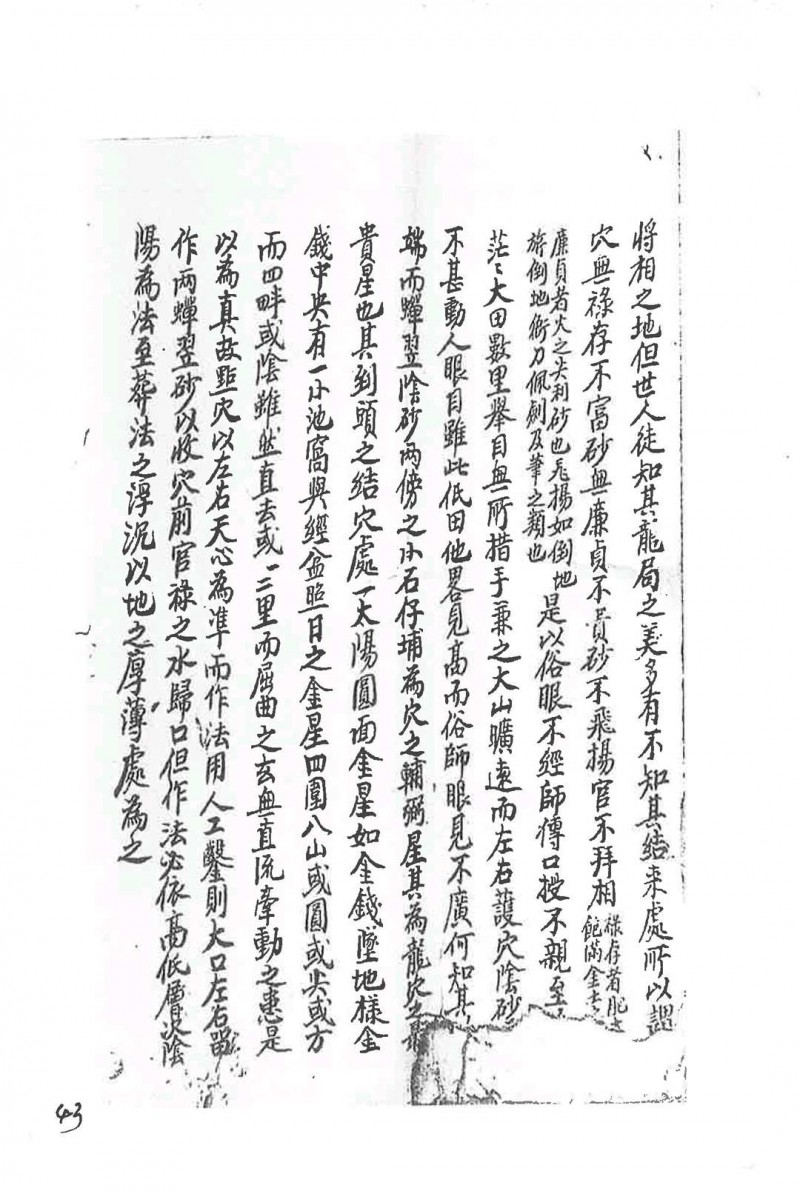 將相之地但世人徒知其龍局之美多有不知其結来處所以謂
穴無祿存不富砂無廉貞不貴砂不飛揚官不拜相祿存者肥
飽滿金
廉貞者火之尖利砂也飛揚如倒地
旂倒地衙刀佩劍及筆之類也
是以俗眼不經師傳口授不親至
茫〻大田數里舉目無所措手兼之大山曠遠而左右護穴陰砂
不甚動人眼目雖此低田他畧見高而俗師眼見不廣何知其
端而蟬翌陰砂兩傍之小石仔埔為穴之輔弼星其為龍穴之
貴星也其到頭之結穴處一太陽圓面金星如金錢墜地樣金
錢中央有一小池窩與經盆照日之金星四圍八山或圓或尖或方
而四畔或陰雖然直去或一二里而屈曲之玄無直流牽動之患是
以為真故點穴以左右天心為準而作法用人工鑿則大口左右
作兩蟬翌砂以收穴前官祿之水歸口但作法必依高低層次陰
陽為法至葬法之浮沉以地之厚薄處為之
43